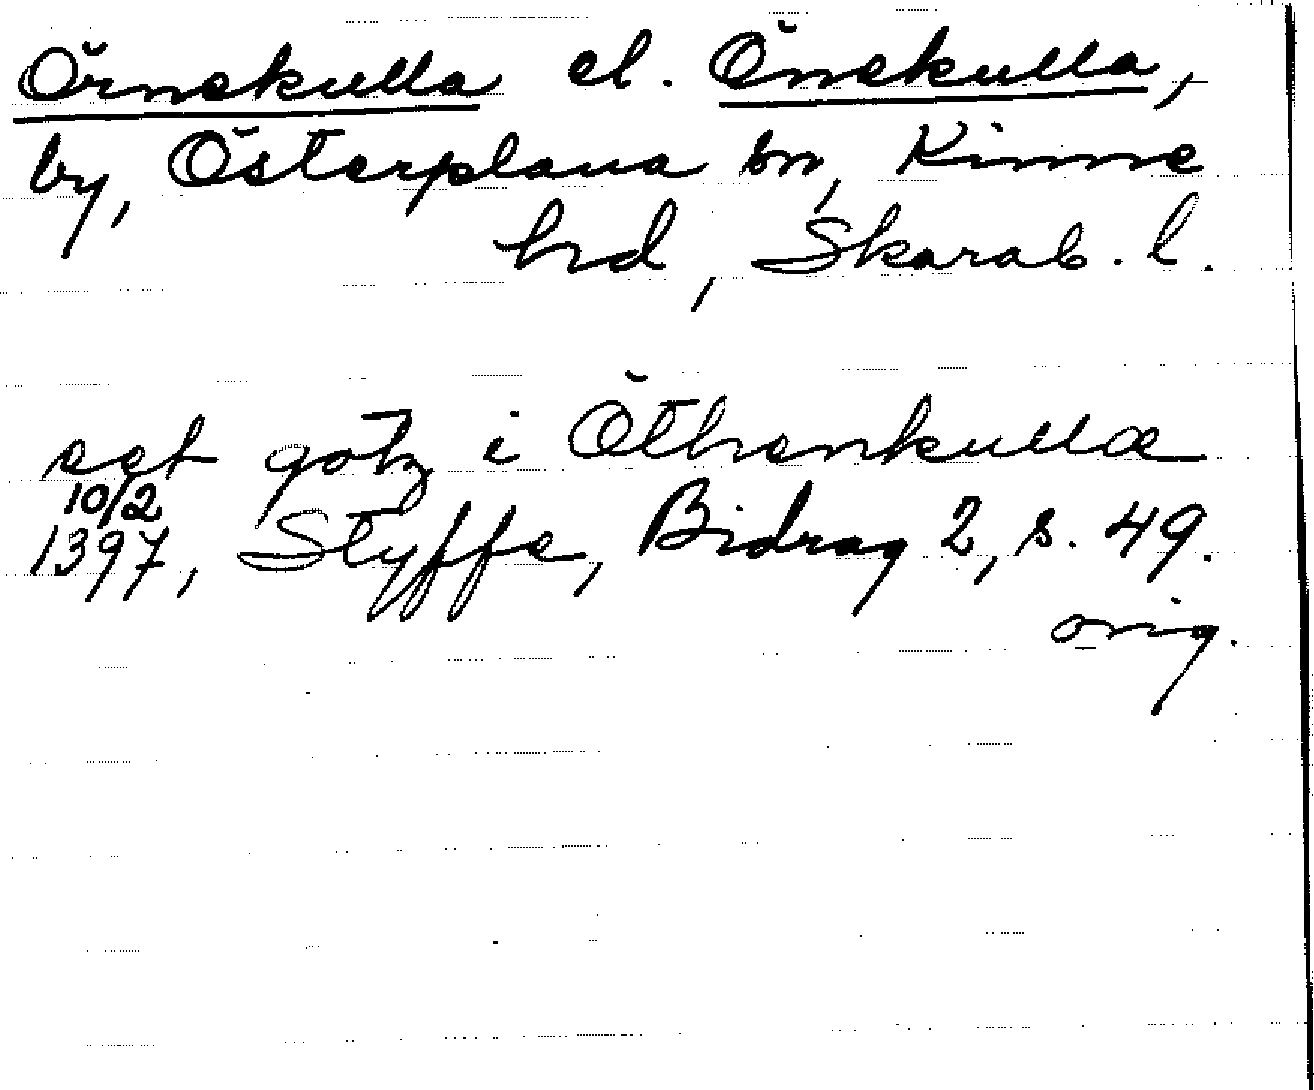 Örnekulla el. Önekulla,
by, Österplana sn, Kinne
hrd, Skarab. l.
aet götz i Öthenkullæ
10/2
1397, Styffe, Bidrag 2, s. 49.
orig.